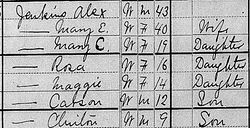 Jenkins Alex W M 43
— Mary E. W F 40 Wife
— Mary C. W F 19 Daughter
— Rosa W F 16 Daughter
— Maggie W F 14 Daughter
— Carson W M 12 Son
— Clinton W M 9 Son